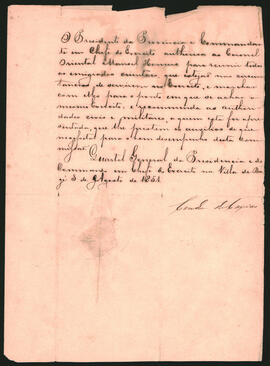 O Presidente da Provincia e Commandan-
te em Chefe do Exercito authorisa ao Coronel
Oriental Manoel para reunir todo
os emigrados que estejão nas circuns-
tancias de servirem no Exercito, e marchar
com elles para o ponto em que se achar o
mesmo Exercito, e recommenda as authorida-
des civis e militares, a quem este for apre-
sentado, que lhe prestem os auxilios de que
necessitar para o bom desempenho desta Com-
missão. Quartel General da Presidencia e do
Commando em Chefe do Exercito na Villa de Ba-
gé 3 de Agosto de 1851
Conde de Caxias